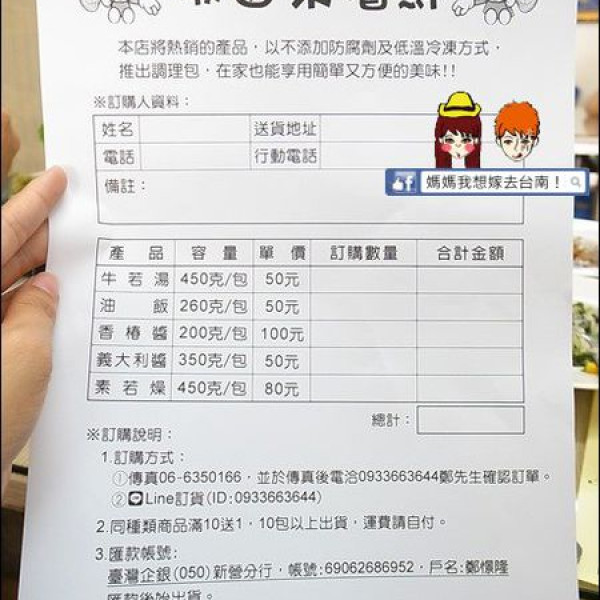 本店將熱銷的產品，以不添加防腐劑及低溫冷凍方式，
推出調理包，在家也能享用簡單又方便的美味!!
※訂購人資料：
姓名 送貨地址
電話 行動電話
備註：
媽媽我想嫁去台南！
產品 容量 單價 訂購數量 合計金額
牛若湯 450克/包 50元
油飯 260克/包 50元
香椿醬 200克/包 100元
義大利醬 350克/包 50元
素若燥 450克/包 80元
總計：
※訂購說明：
1.訂購方式：
①傳真06-6350166，並於傳真後電洽0933663644鄭先生確認訂單。
②Line訂貨(ID:0933663644)
2.同種類商品滿10送1，10包以上出貨，運費請自付。
3.匯款帳號:
臺灣企銀(050)新營分行，帳號:69062686952，戶名:鄭憬隆
匯款後始出貨。